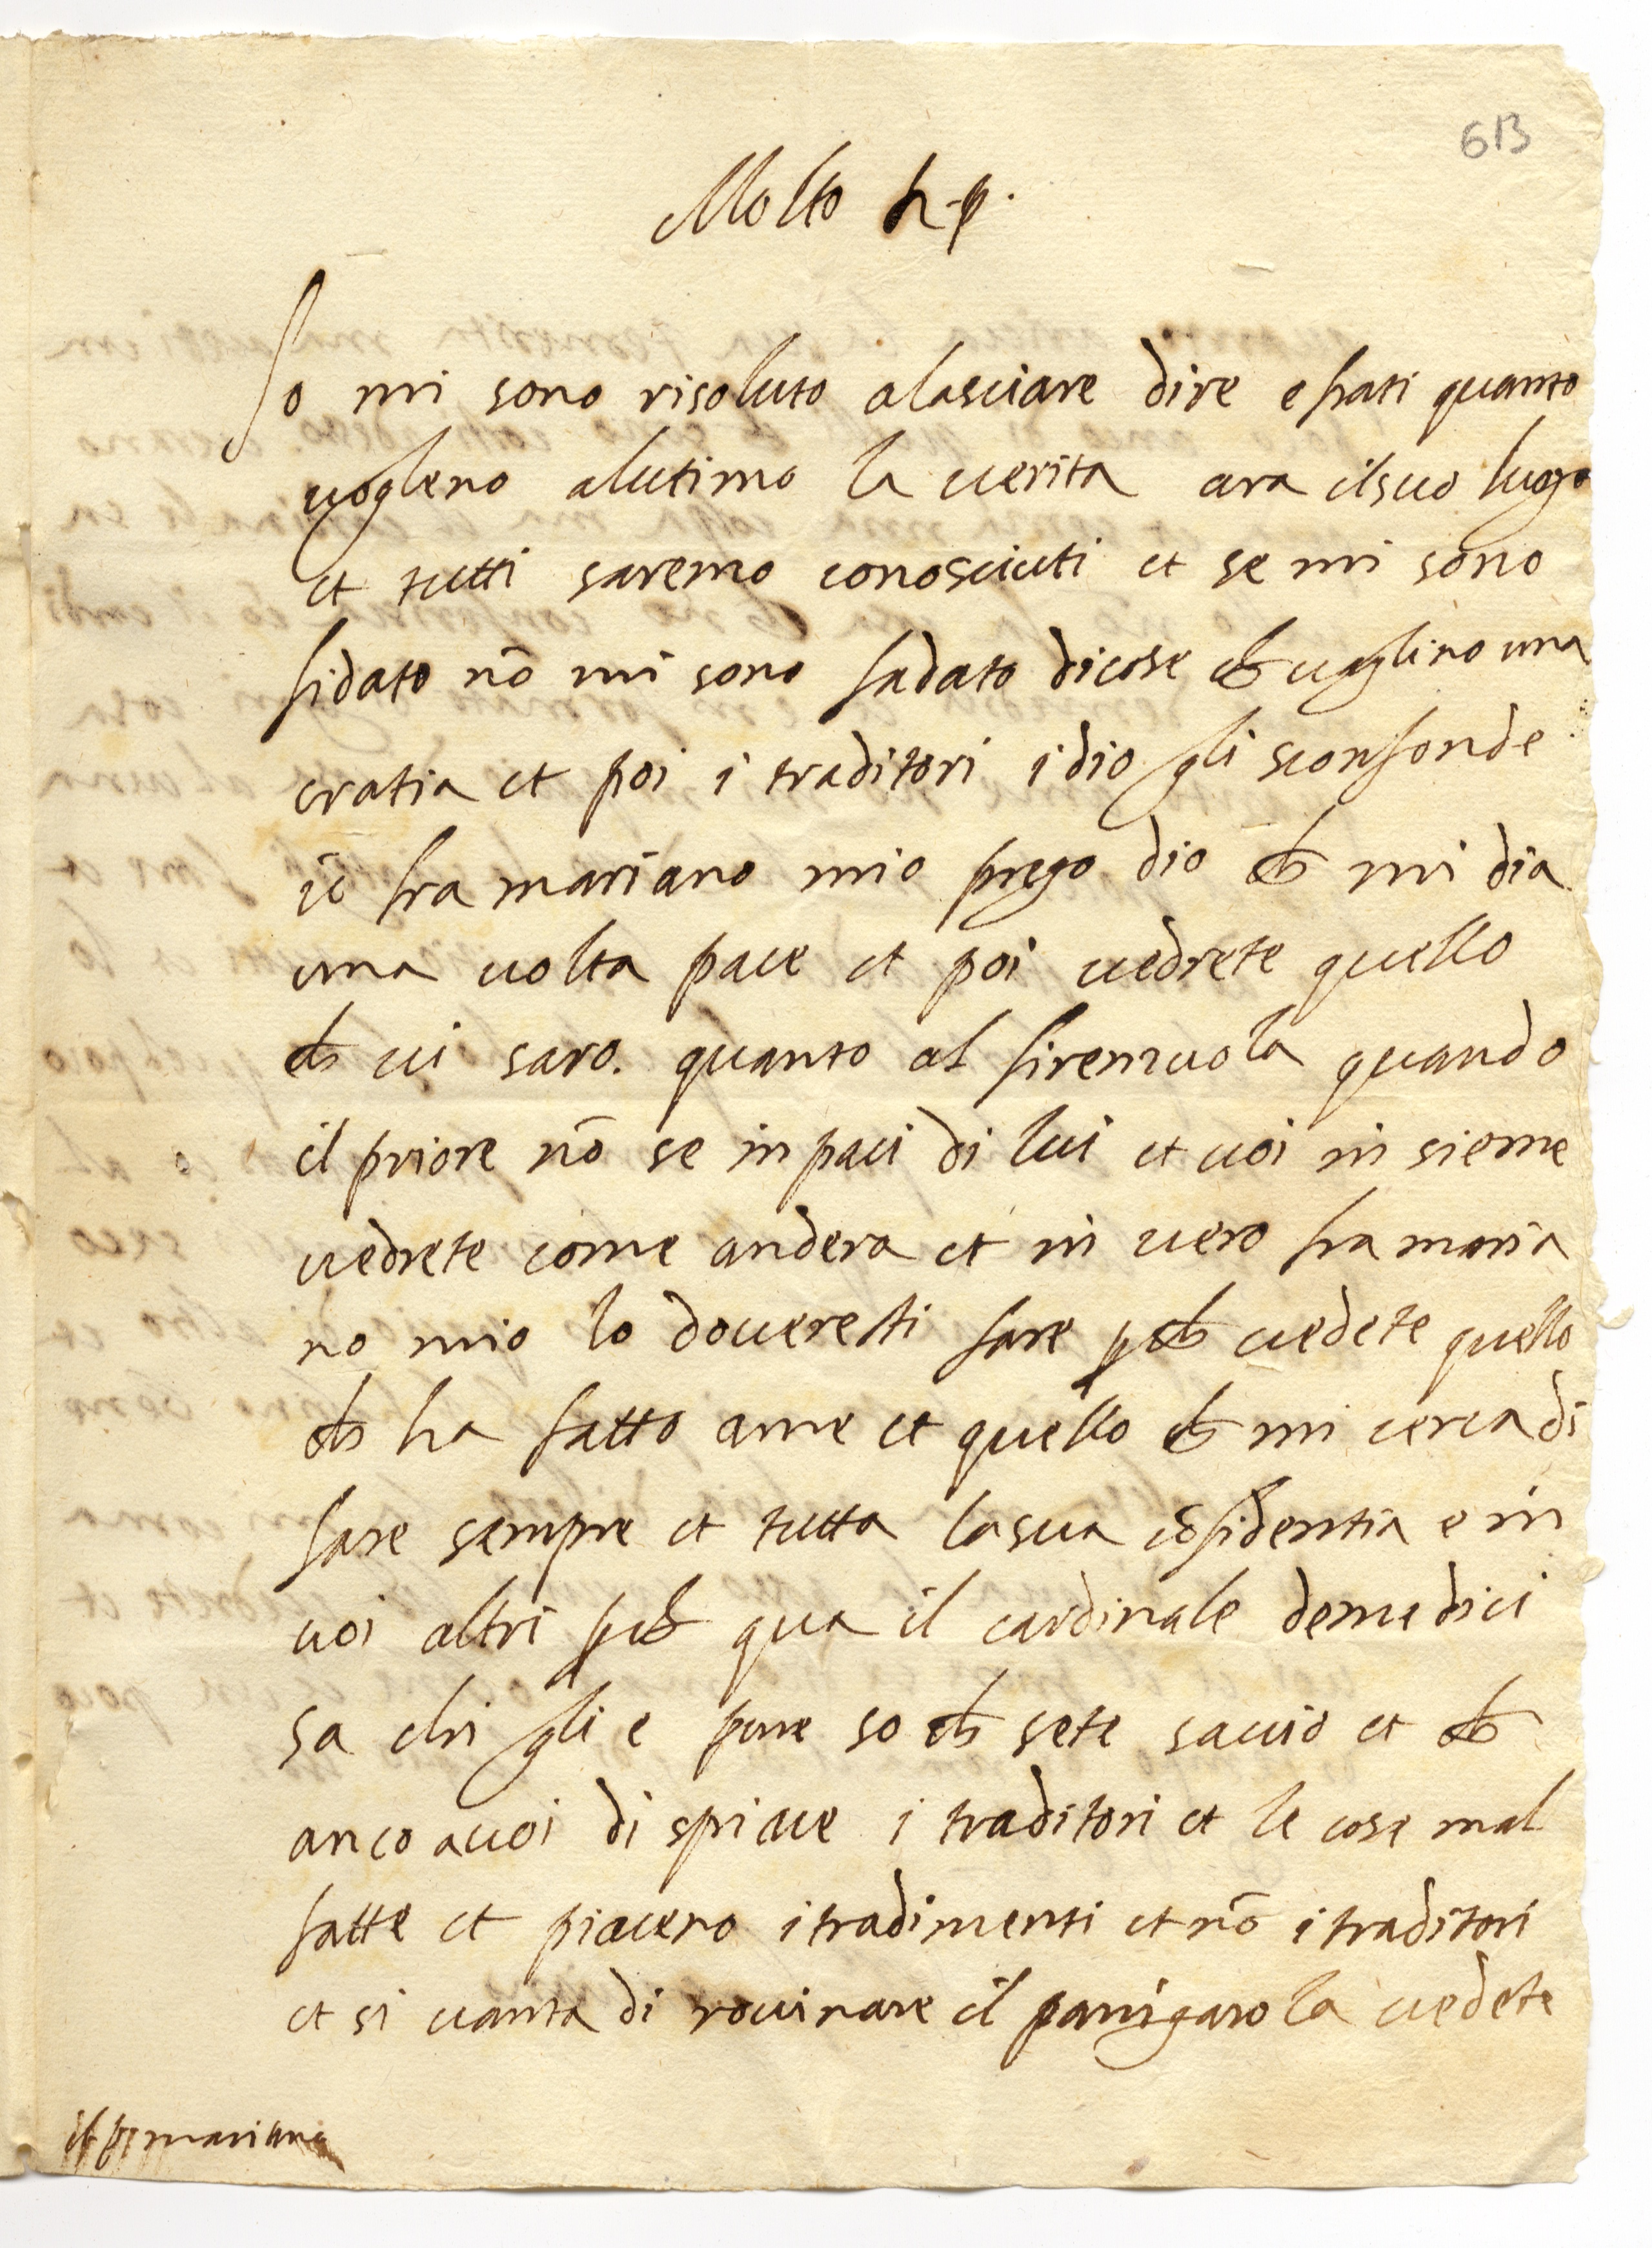 613
Molto R.P.
Io mi sono risoluto alasciare dire e frati quanto
vogleno alutimo la verita ara ilsuo lugo
et tutti saremo conosciuti et se mi sono
fidato nō mi sono fadato dicose che vaglino una
cratia et poi i traditori idio gli sconfonde
iō fra mariano mio prego dio che mi dia
una volta pace et poi vedrete quello
che vi saro. quanto al firenzuola quando
il priore nō se inpaci di lui et voi in sieme
vedrete come andera et in vero fra maria
no mio lo doveresti fare pche vedete quello
che ha fatto ame et quello che mi cerca di
fare sempre et tutta lasua cōfidentia e in
voi altri pche qua il cardinale demedici
sa chi gli e pure so che sete savio et che
anco avoi di spiace i traditori et le cose mal
fatte et piaceno itradimenti et nō itraditori
et si vanta di rovinare il panigarola vedete
mariano